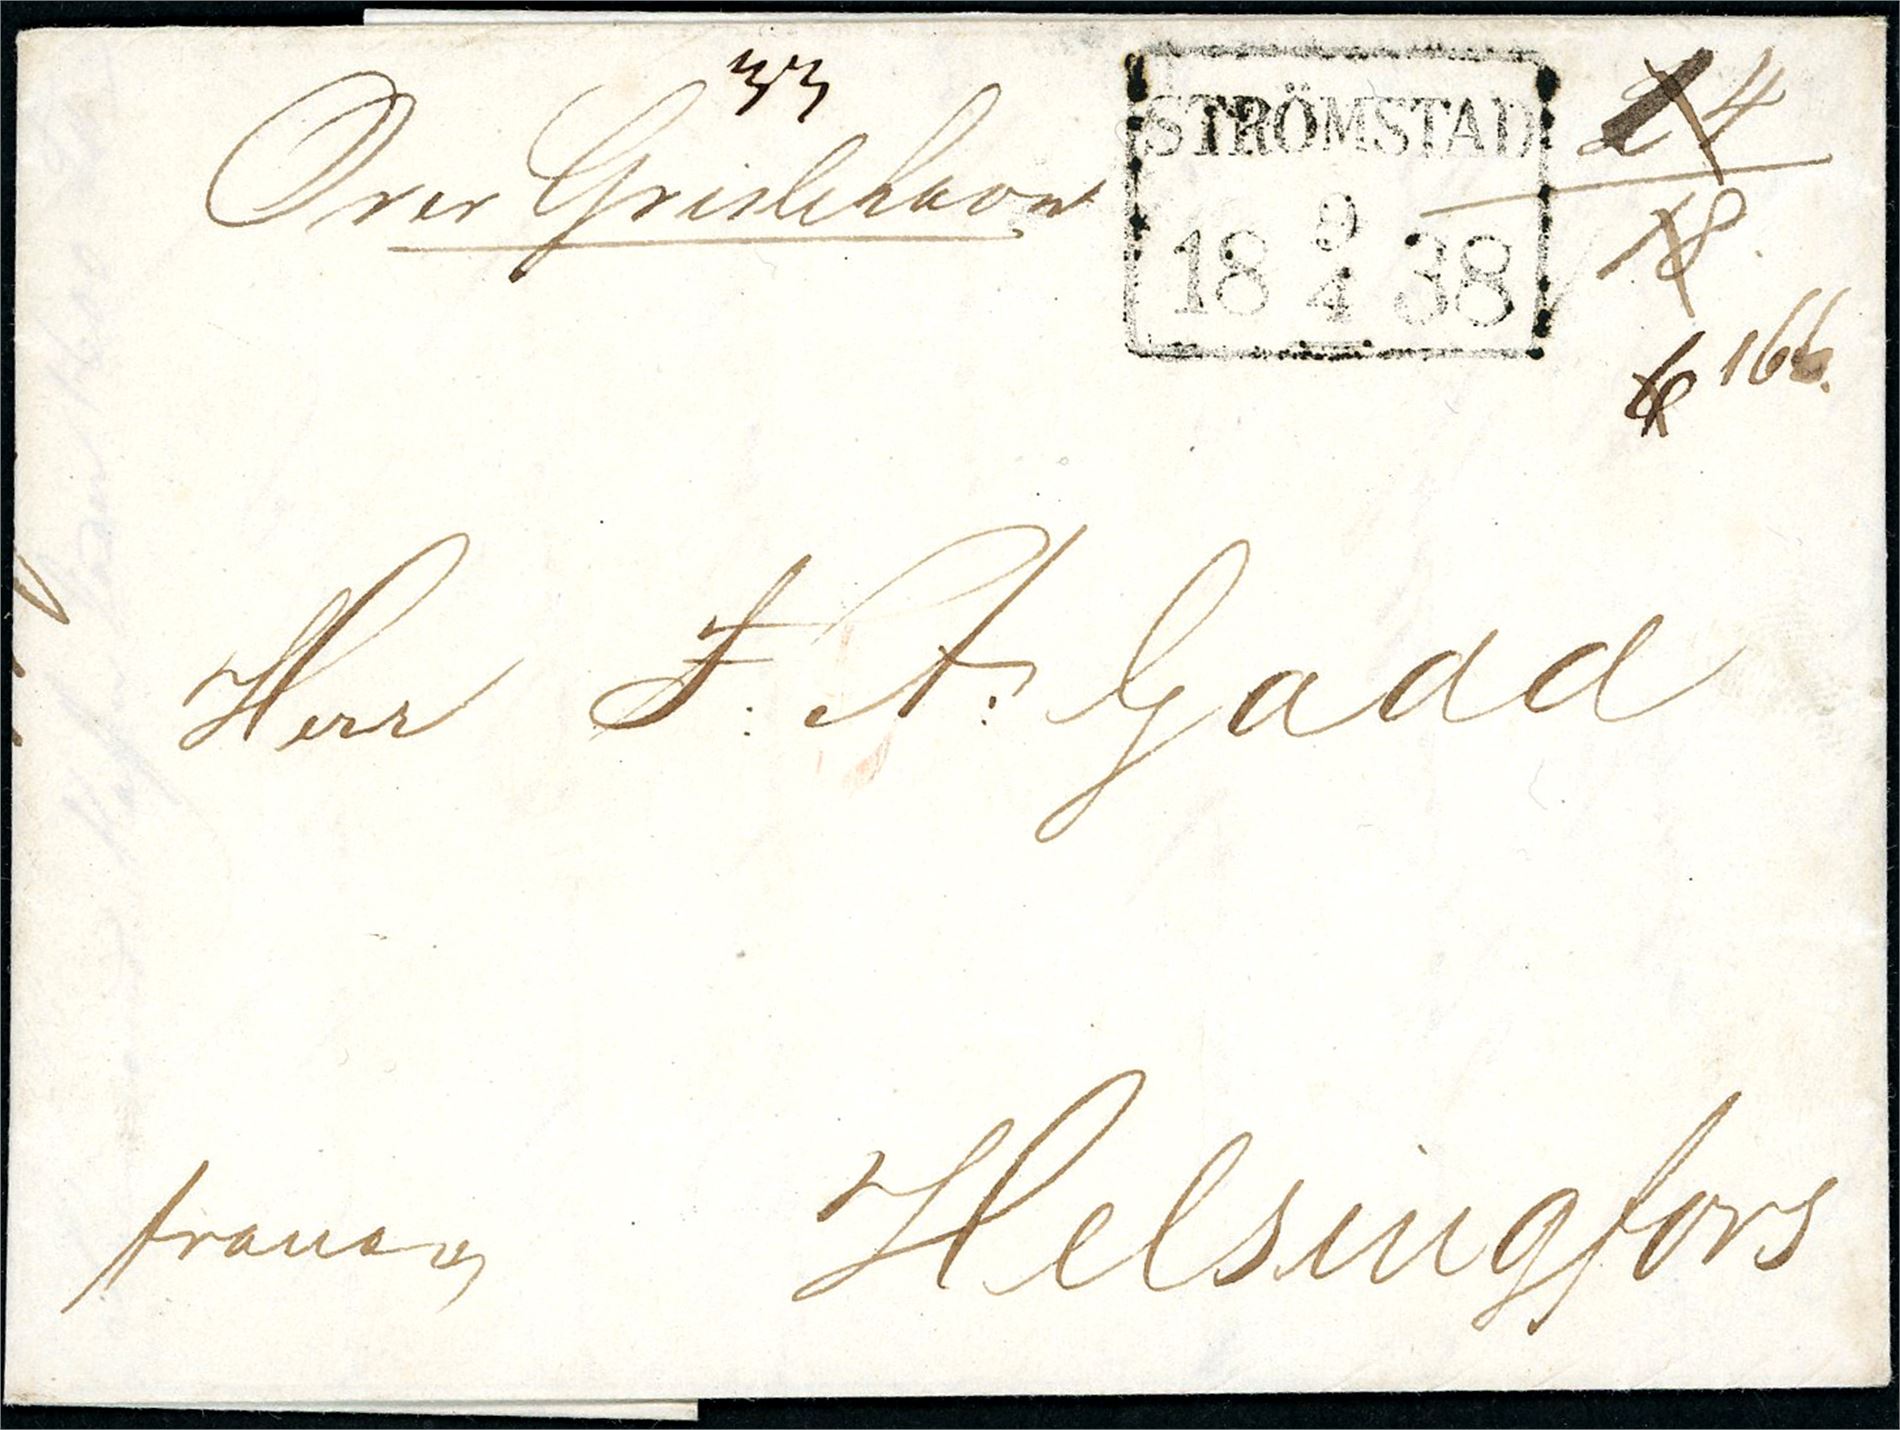 33
Over Grislehavn
STRÖMSTAD
9
18 4 38
24
18
6 166.
Herr F. A. Gadd
Helsingfors